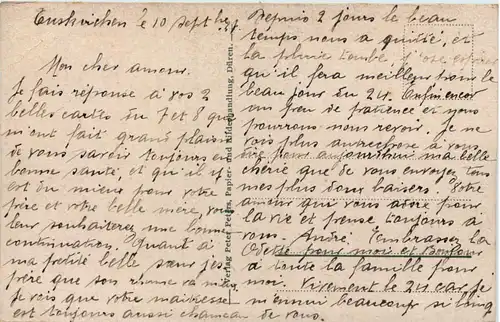 Euskirchen le 10 Septbre
Mon cher amour.
Je fais réponse à vos 2
belles cartes du 7 et 8 qui
m'ont fait grand plaisir
de vous savoir toujours en
bonne santé, et qu'il en
est du mieux pour votre
frère et votre belle mère, vous
leur souhaiterez une bonne
continuation. Quant à
ma petite belle sœur j'es
père que son rhume va mieux
Je vois que votre maîtresse
est toujours aussi chameau de vous.
Verlag Peter Peters, Papier- und Bilderhandlung, Düren.
Depuis 2 jours le beau
temps nous a quitté, et
la pluie tombe, j'ose espérer
qu'il fera meilleur pour le
beau jour du 24. Enfin encor
un peu de patience et nous
pourrons nous revoir. Je ne
vois plus autre chose à vous
dire pour aujourd'hui ma belle
chérie que de vous envoyer tous
mes plus doux baisers. Votre
amour qui vous adore pour
la vie et pense toujours à
vous. André. J'embrasse la
Odette pour moi et Bonjour
à toute la famille pour
moi. Vivement le 24 car je
m'ennui beaucoup si long